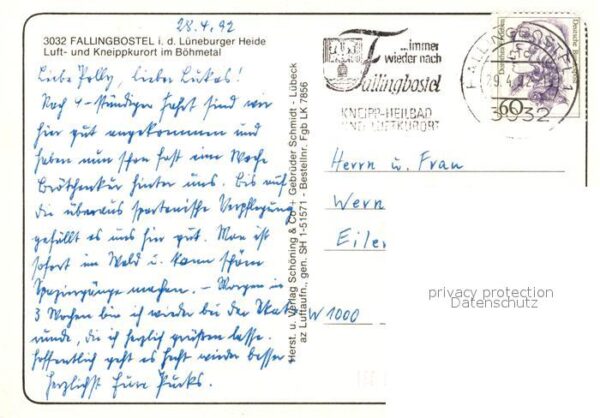 28.4.92
3032 FALLINGBOSTEL i. d. Lüneburger Heide
Luft- und Kneippkurort im Böhmetal
Liebe Polly, lieber Lukas!
Nach 4-stündiger Fahrt sind wir
hier gut angekommen und
haben nun schon fast eine Woche
hinter uns. Bis auf
die überaus spartanische Verpflegung
gefällt es uns hier gut. Man ist
sofort im Wald u. kann schöne
Spaziergänge machen. – Morgen in
3 Wochen bin ich wieder bei der Skat
runde, die ich herzlich grüßen lasse.
Hoffentlich geht es Hecht wieder besser
Herzlichst Eure Pucks.
Herst. u. Verlag Schöning & Co + Gebrüder Schmidt - Lübeck
az Luftaufn., gen. SH 1-51571 - Bestellnr. Fgb LK 7856
...immer
wieder nach
Fallingbostel
KNEIPP-HEILBAD
UND LUFTKURORT
FALLINGBOSTEL 1
29.4.92
3032
60
Deutsche Bundespost
Herrn u. Frau
Wern
Eiler
W 1000
privacy protection
Datenschutz